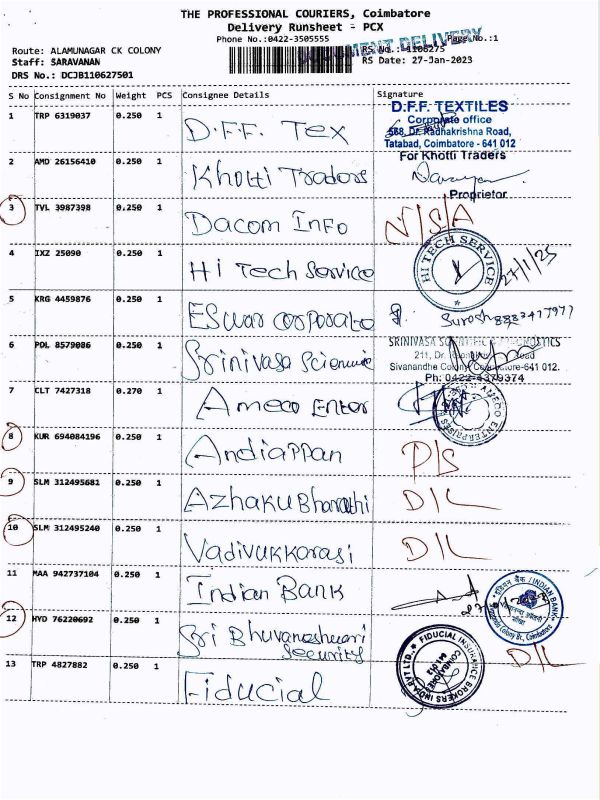 THE PROFESSIONAL COURIERS, Coimbatore
Delivery Runsheet - PCX
Phone No.:0422-3505555
Page No.:1
DOCUMENT DELIVERY
Route: ALAMUNAGAR CK COLONY
RS No.: 1106275
Staff: SARAVANAN
RS Date: 27-Jan-2023
DRS No.: DCJB110627501
S No Consignment No Weight PCS Consignee Details Signature
1 TRP 6319037 0.250 1 D.F.F. Tex
D.F.F. TEXTILES
Corporate office
568, Dr. Radhakrishna Road,
Tatabad, Coimbatore - 641 012
2 AMD 26156410 0.250 1 Khotti Traders
For Khotti Traders
Proprietor
3 TVL 3987398 0.250 1 Dacom Info N/S/A
4 IXZ 25090 0.250 1 Hi Tech Service
HI TECH SERVICE
27/1/25
5 KRG 4459876 0.250 1 Eswar corporate
Suresh
6 PDL 8579086 0.250 1 Srinivasa Scientific
SRINIVASA SCIENTIFIC DIAGNOSTICS
211, Dr. Road
Sivanandhe Colony, Coimbatore-641 012.
Ph: 0422-4379374
7 CLT 7427318 0.270 1 Ameco Enter
AMECO ENTERPRISES
8 KUR 694084196 0.250 1 Andiappan D/S
9 SLM 312495681 0.250 1 Azhaku Bharathi D/L
10 SLM 312495240 0.250 1 Vadivukkarasi D/L
11 MAA 942737104 0.250 1 Indian Bank
इंडियन बैंक / INDIAN BANK
Colony Br., Coimbatore
12 HYD 76220692 0.250 1 Sri Bhuvaneshwari
Security
D/L
13 TRP 4827882 0.250 1 Fiducial
FIDUCIAL INSURANCE BROKERS INDIA PVT LTD.,
COIMBATORE
641 012